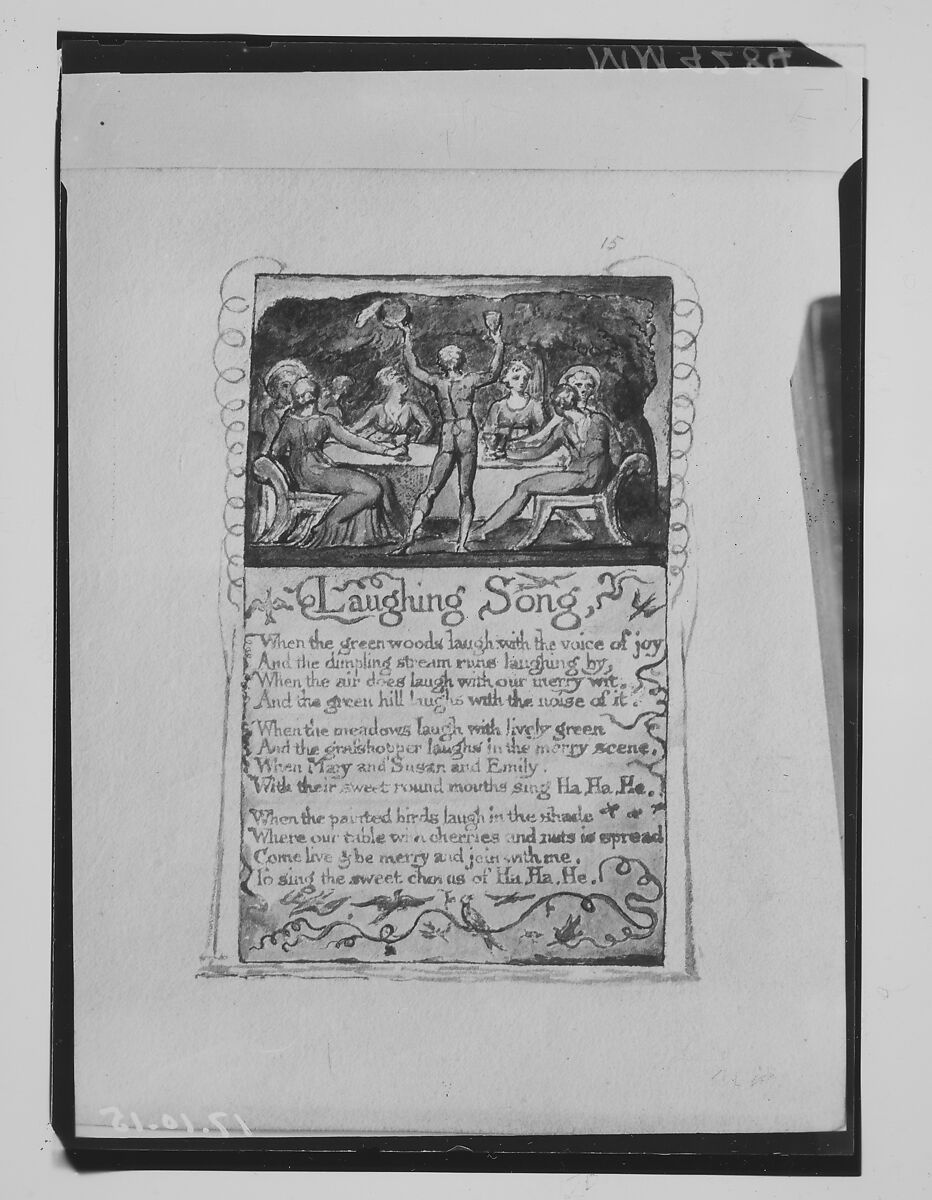 MM 4284
15
Laughing Song,
When the green woods laugh with the voice of joy
And the dimpling stream runs laughing by,
When the air does laugh with our merry wit,
And the green hill laughs with the noise of it.
When the meadows laugh with lively green
And the grashopper laughs in the merry scene,
When Mary and Susan and Emily,
With their sweet round mouths sing Ha, Ha, He.
When the painted birds laugh in the shade
Where our table with cherries and nuts is spread
Come live & be merry and join with me,
To sing the sweet chorus of Ha, Ha, He.
17.10.15